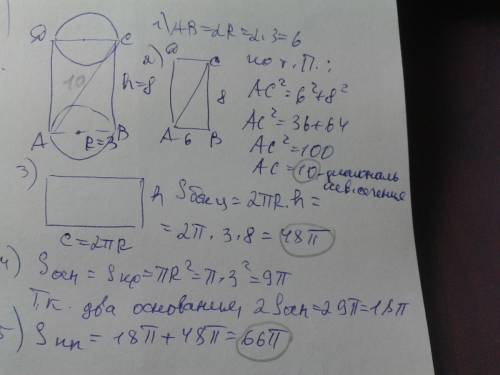 1) AB=2R=2·3=6
D C
10
h=8
A R=3 B
2) D C
8
A 6 B
по т. П.:
AC²=6²+8²
AC²=36+64
AC²=100
AC=10-диагональ
осев. сечения
3)
h
C=2πR
Sбоц=2πR·h=
=2π·3·8=48π
4) Sосн=Sкр=πR²=π·3²=9π
Т.к. два основания, 2Sосн=29π=18π
5) Sпп=18π+48π=66π